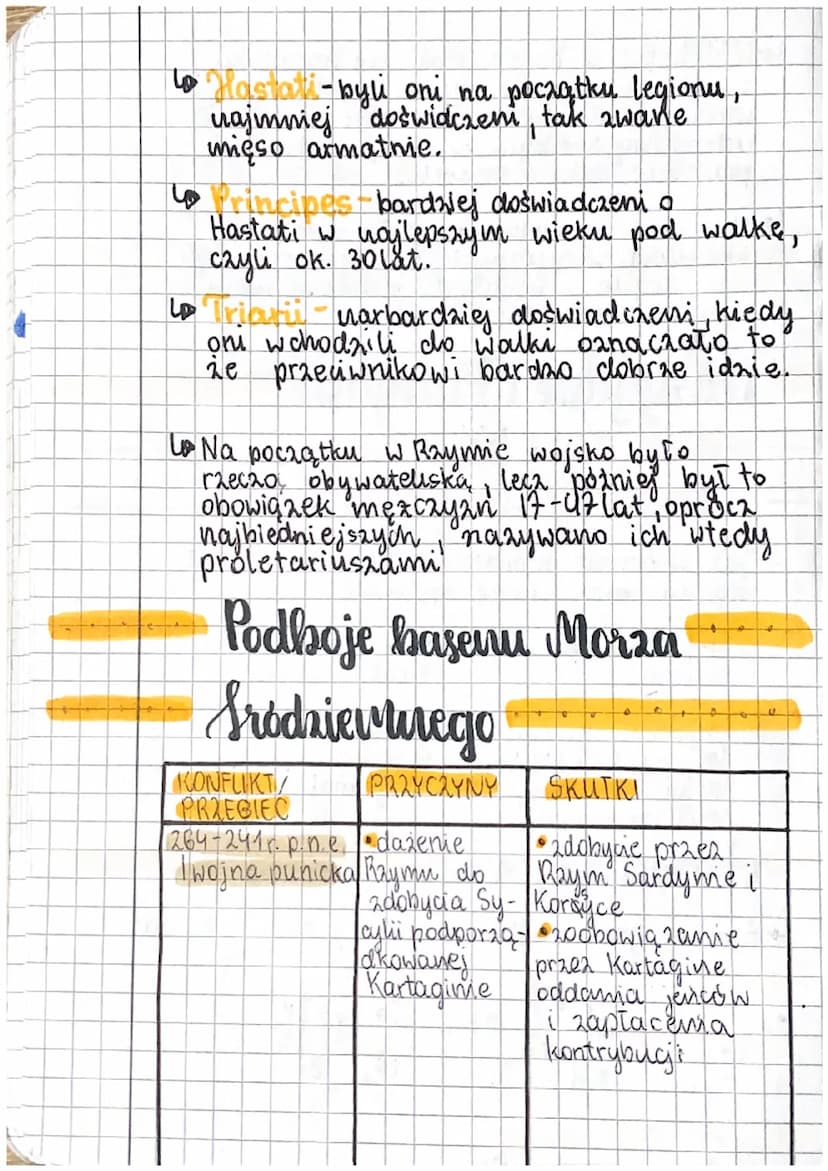 ↳ Hastati - byli oni na początku legionu,
najmniej doświdczeni, tak zwane
mięso armatnie.
↳ Principes - bardziej doświadczeni o
Hastati w najlepszym wieku pod walkę,
czyli ok. 30 lat.
↳ Triarii - narbardziej doświadczeni, kiedy
oni wchodzili do walki oznaczało to
że przeciwnikowi bardzo dobrze idzie.
↳ Na początku w Rzymie wojsko było
rzeczą obywatelską, lecz później był to
obowiązek mężczyzn 17-47 lat, oprócz
najbiedniejszych, nazywano ich wtedy
proletariuszami
Podboje basenu Morza
Śródziemnego
KONFLIKT/
PRZEBIEG
264-241 r. p.n.e.
I wojna punicka
PRZYCZYNY
• dążenie
Rzymu do
zdobycia Sy-
cylii podporzą-
dkowanej
Kartaginie
SKUTKI
• zdobycie przez
Rzym Sardynię i
Korsyce
• zoobowiązanie
przez Kartagine
oddania jeńców
i zapłacenia
kontrybucji